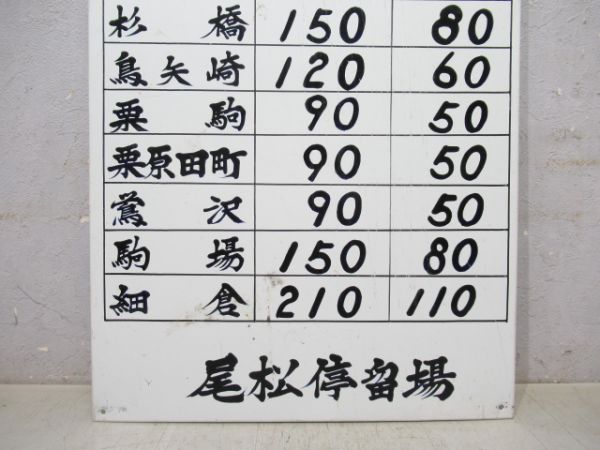 杉橋 150 80
鳥矢崎 120 60
栗駒 90 50
栗原田町 90 50
鶯沢 90 50
駒場 150 80
細倉 210 110
尾松停留場